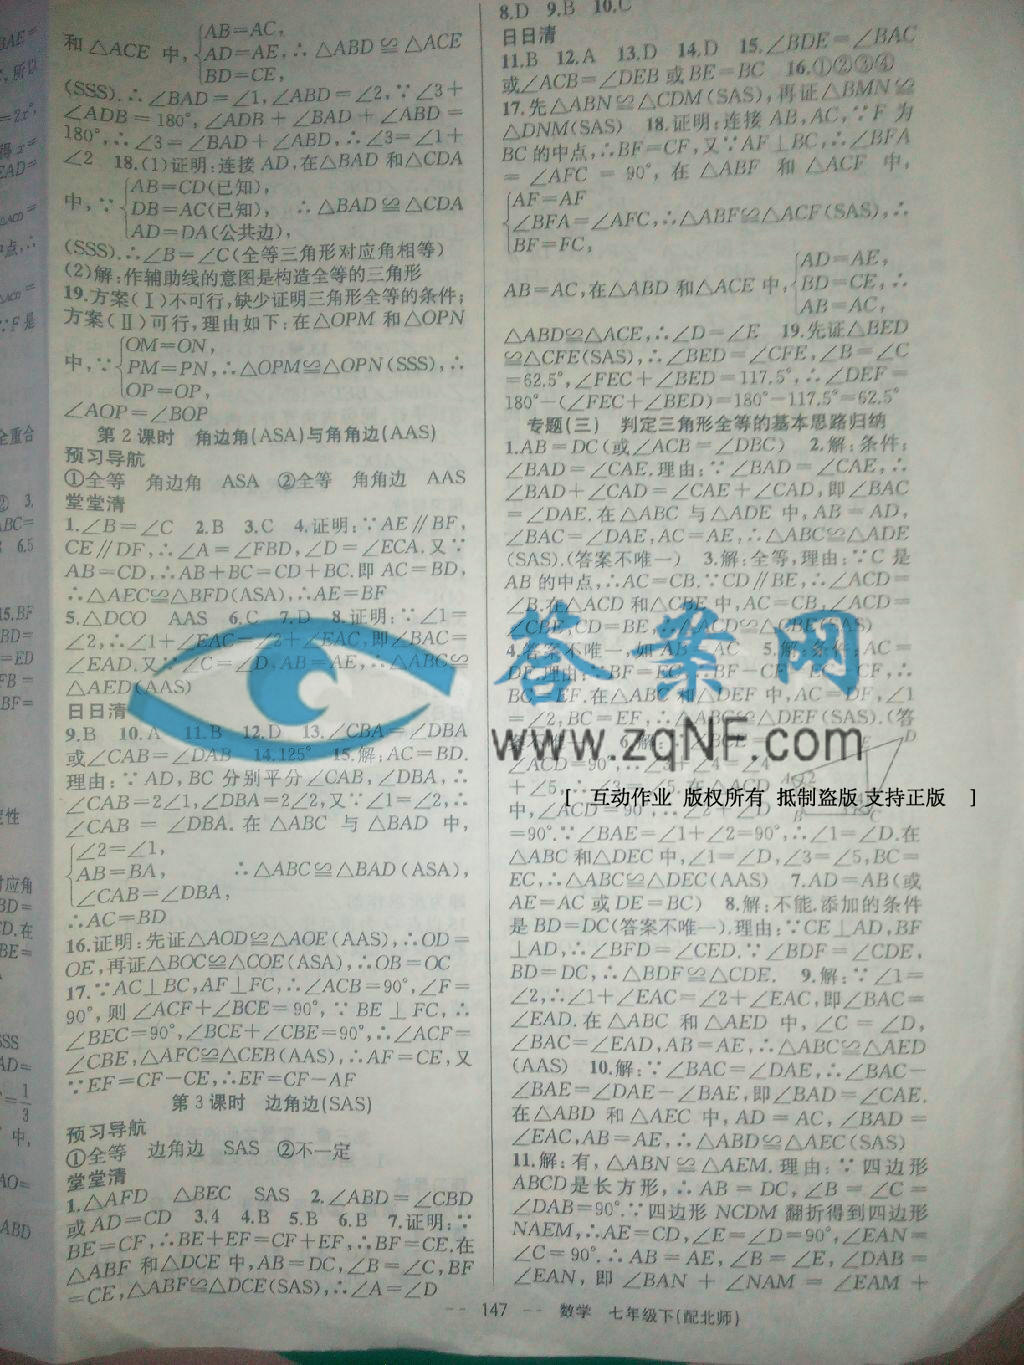 和△ACE 中,{AB=AC,
AD=AE,∴△ABD≌△ACE
BD=CE,
(SSS).∴∠BAD=∠1,∠ABD=∠2,∵∠3+
∠ADB=180°,∠ADB+∠BAD+∠ABD=
180°,∴∠3=∠BAD+∠ABD,∴∠3=∠1+
∠2 18.(1)证明:连接 AD,在△BAD 和△CDA
中,∵{AB=CD(已知),
DB=AC(已知), ∴△BAD≌△CDA
AD=DA(公共边),
(SSS).∴∠B=∠C(全等三角形对应角相等)
(2)解:作辅助线的意图是构造全等的三角形
19.方案(Ⅰ)不可行,缺少证明三角形全等的条件;
方案(Ⅱ)可行,理由如下:在△OPM 和△OPN
中,∵{OM=ON,
PM=PN,∴△OPM≌△OPN(SSS),∴
OP=OP,
∠AOP=∠BOP
第 2 课时 角边角(ASA)与角角边(AAS)
预习导航
①全等 角边角 ASA ②全等 角角边 AAS
堂堂清
1.∠B=∠C 2.B 3.C 4.证明:∵AE∥BF,
CE∥DF,∴∠A=∠FBD,∠D=∠ECA.又∵
AB=CD,∴AB+BC=CD+BC.即 AC=BD,
∴△AEC≌△BFD(ASA),∴AE=BF
5.△DCO AAS 6.C 7.D 8.证明:∵∠1=
∠2,∴∠1+∠EAC=∠2+∠EAC,即∠BAC=
∠EAD.又∵∠C=∠D,AB=AE,∴△ABC≌
△AED(AAS)
日日清
9.B 10.A 11.B 12.D 13.∠CBA=∠DBA
或∠CAB=∠DAB 14.125° 15.解:AC=BD.
理由:∵AD,BC 分别平分∠CAB,∠DBA,∴
∠CAB=2∠1,∠DBA=2∠2,又∵∠1=∠2,∴
∠CAB=∠DBA.在△ABC 与△BAD 中,
{∠2=∠1,
AB=BA, ∴△ABC≌△BAD(ASA),
∠CAB=∠DBA,
∴AC=BD
16.证明:先证△AOD≌△AOE(AAS),∴OD=
OE,再证△BOC≌△COE(ASA),∴OB=OC
17.∵AC⊥BC,AF⊥FC,∴∠ACB=90°,∠F=
90°,则∠ACF+∠BCE=90°,∵BE⊥FC,∴
∠BEC=90°,∠BCE+∠CBE=90°,∴∠ACF=
∠CBE,△AFC≌△CEB(AAS),∴AF=CE,又
∵EF=CF-CE,∴EF=CF-AF
第 3 课时 边角边(SAS)
预习导航
①全等 边角边 SAS ②不一定
堂堂清
1.△AFD △BEC SAS 2.∠ABD=∠CBD
或 AD=CD 3.4 4.B 5.B 6.B 7.证明:∵
BE=CF,∴BE+EF=CF+EF,∴BF=CE.在
△ABF 和△DCE 中,AB=DC,∠B=∠C,BF
=CE,△ABF≌△DCE(SAS),∴∠A=∠D
8.D 9.B 10.C
日日清
11.B 12.A 13.D 14.D 15.∠BDE=∠BAC
或∠ACB=∠DEB 或 BE=BC 16.①②③④
17.先△ABN≌△CDM(SAS),再证△BMN≌
△DNM(SAS) 18.证明:连接 AB,AC,∵F 为
BC 的中点,∴BF=CF,又∵AF⊥BC,∴∠BFA
=∠AFC=90°,在△ABF 和△ACF 中,
{AF=AF
∠BFA=∠AFC,∴△ABF≌△ACF(SAS),∴
BF=FC,
AB=AC,在△ABD 和△ACE 中,{AD=AE,
BD=CE,∴
AB=AC,
△ABD≌△ACE,∴∠D=∠E 19.先证△BED
≌△CFE(SAS),∴∠BED=∠CFE,∠B=∠C
=62.5°,∠FEC+∠BED=117.5°,∴∠DEF=
180°-(∠FEC+∠BED)=180°-117.5°=62.5°
专题(三) 判定三角形全等的基本思路归纳
1.AB=DC(或∠ACB=∠DBC) 2.解:条件:
∠BAD=∠CAE.理由:∵∠BAD=∠CAE,∴
∠BAD+∠CAD=∠CAE+∠CAD,即∠BAC
=∠DAE.在△ABC 与△ADE 中,AB=AD,
∠BAC=∠DAE,AC=AE,∴△ABC≌△ADE
(SAS).(答案不唯一) 3.解:全等,理由:∵C 是
AB 的中点,∴AC=CB.∵CD∥BE,∴∠ACD=
∠B.在△ACD 和△CBE 中,AC=CB,∠ACD=
∠CBE,CD=BE,∴△ACD≌△CBE(SAS)
4.答案不唯一,如 AB=AC 5.解:条件:AC=
DF.理由:∵BF=EC,∴BF-CF=EC-CF,∴
BC=EF.在△ABC 和△DEF 中,AC=DF,∠1
=∠2,BC=EF,∴△ABC≌△DEF(SAS).(答
6.解:∵∠BCE=∠
ACD=90°,∴∠3+∠4=∠4
+∠5,∴∠3=∠5.在△ACD
中,∠ACD=90°,∴∠2+∠D
=90°.∵∠BAE=∠1+∠2=90°,∴∠1=∠D.在
△ABC 和△DEC 中,∠1=∠D,∠3=∠5,BC=
EC,∴△ABC≌△DEC(AAS) 7.AD=AB(或
AE=AC 或 DE=BC) 8.解:不能.添加的条件
是 BD=DC(答案不唯一).理由:∵CE⊥AD,BF
⊥AD,∴∠BFD=∠CED.∵∠BDF=∠CDE,
BD=DC,∴△BDF≌△CDE. 9.解:∵∠1=
∠2,∴∠1+∠EAC=∠2+∠EAC,即∠BAC=
∠EAD.在△ABC 和△AED 中,∠C=∠D,
∠BAC=∠EAD,AB=AE,∴△ABC≌△AED
(AAS) 10.解:∵∠BAC=∠DAE,∴∠BAC-
∠BAE=∠DAE-∠BAE,即∠BAD=∠CAE.
在△ABD 和△AEC 中,AD=AC,∠BAD=
∠EAC,AB=AE,∴△ABD≌△AEC(SAS)
11.解:有,△ABN≌△AEM.理由:∵四边形
ABCD 是长方形,∴AB=DC,∠B=∠C=
∠DAB=90°.∵四边形 NCDM 翻折得到四边形
NAEM,∴AE=CD,∠E=∠D=90°,∠EAN=
∠C=90°.∴AB=AE,∠B=∠E,∠DAB=
∠EAN,即∠BAN+∠NAM=∠EAM+
答案网
www.zqNF.com
[ 互动作业 版权所有 抵制盗版 支持正版 ]
-- 147 -- 数学 七年级下(配北师)